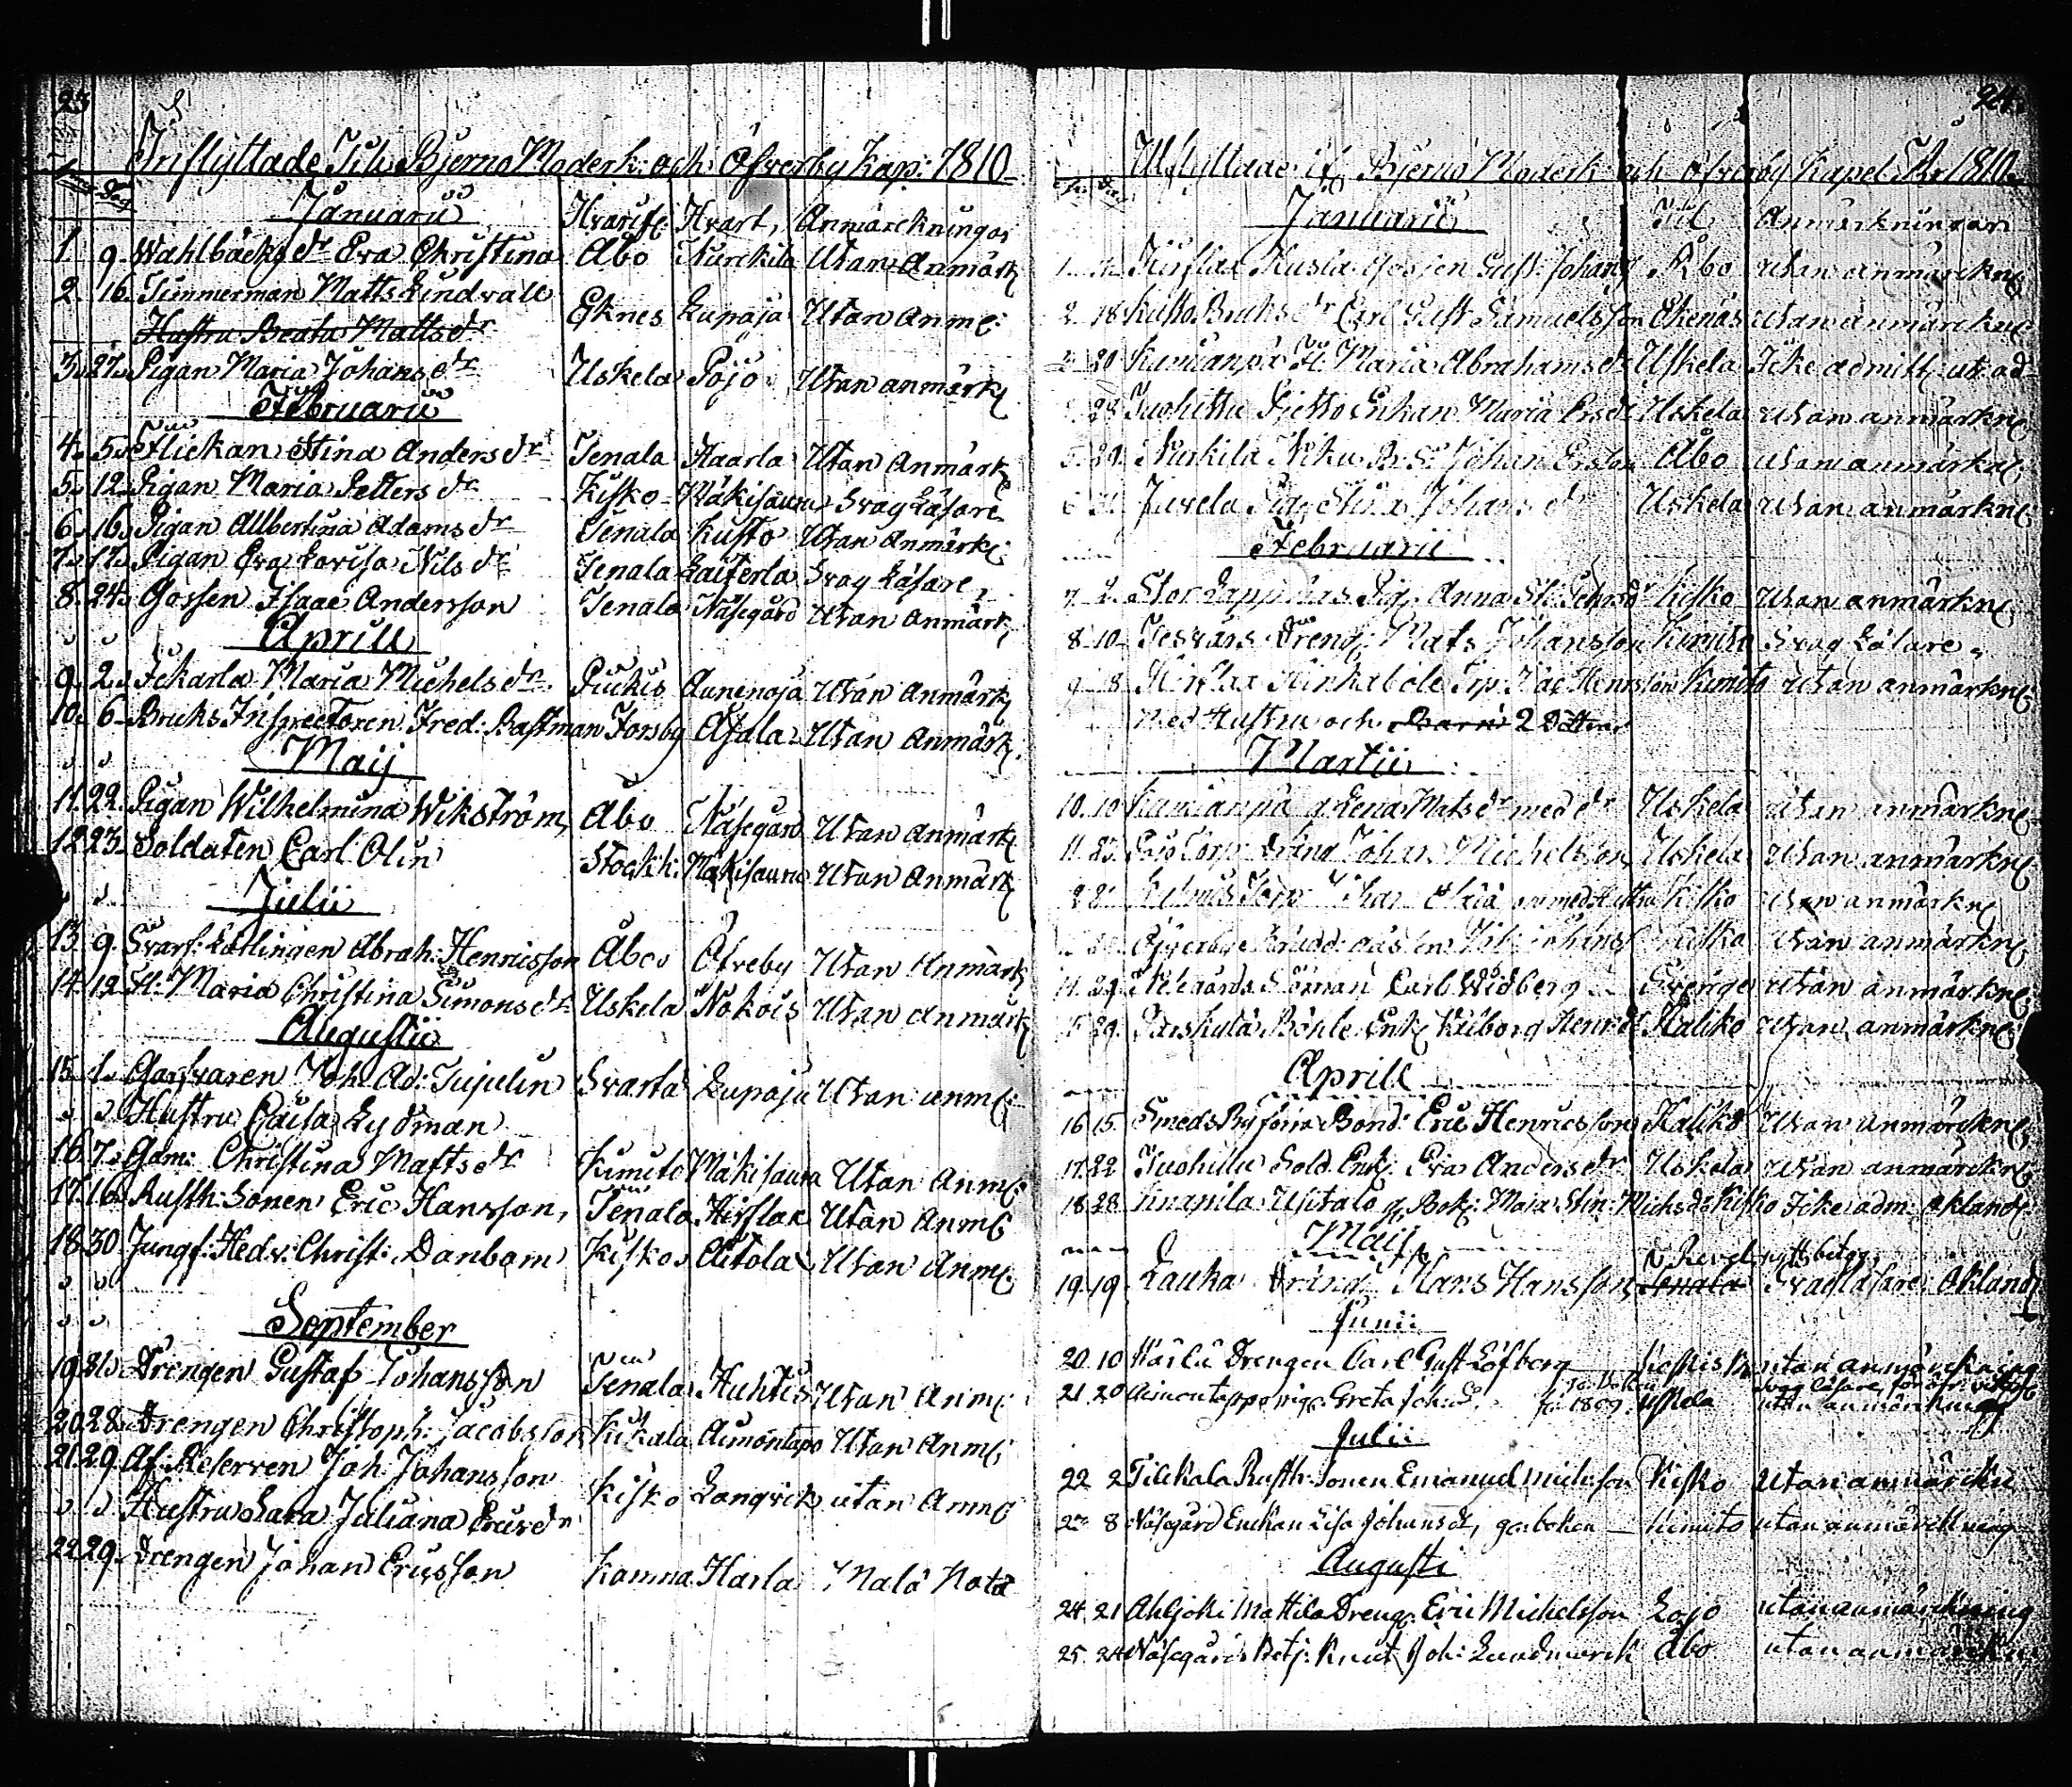 23
Inflyttade Till Bjerno Moderk: och Öfverby Kap: 1810
Dag
Januarii Hvarifr: Hvart, Anmärckningar
1. 9. Wahlbäcks dr Eva Christina Åbo Nurckila Utan Anmärk
2. 16. Timmerman Matts Lindvall Eknes Lupaja Utan Anm:
Hustru Beata Mattsdr
3. 27. Pigan Maria Johansdr Uskela Pojo Utan anmärk
Februarii
4. 5. Flickan Stina Andersdr Tenala Haarla Utan Anmärk
5. 12. Pigan Maria Pettersdr Kisko Mäkisauru Svag Läsare
6. 16. Pigan Allbertina Adamsdr Tenala Kusto Utan Anmärk:
7. 17. Pigan Eva Lovisa Nilsdr Tenala Laiterla Svag Läsare,
8. 24. Gossen Isaac Andersson Tenala Näsegård Utan Anmärk
Aprill
9. 2. Ickarla Maria Michelsdr Puckis Aunenoja Utan Anmärk
10. 6. Bruks Inspectoren Fred: Bastman Forsby Åsala Utan Anmärk:
Maij
11. 22. Pigan Wilhelmina Wikström, Åbo Näsegård Utan Anmärk
12. 23. Soldaten Carl Olin Stockh: Mäkisauru Utan Anmärk
Julii
13. 9. Svarf: Lärlingen Abrah: Henricsson Åbo Öfveby Utan Anmärk
14. 12. H: Maria Christina Simonsdr Uskela Nokois Utan anmärk
Augustii
15. 1. Garfvaren Joh: Ad: Tujulin Svarta Lupaja Utan anm:
Hustru Caisa Lydman
16. 7. Gam: Christina Mattsdr Kimito Mäkisauru Utan Anm:
17. 16. Rusth: Sonen Eric Hansson, Tenala Hirslax Utan Anm:
18. 30. Jungf: Hedv: Christ: Danbom Kisko Aitola Utan Anm:
September
19. Drengen Gustaf Johansson Tenala Huhtis Utan Anm:
20. 28. Drengen Christoph: Jacobsson Kiikala Aimontapo Utan Anm:
21. 29. Af: Reserven Joh: Johansson Kisko Langvik utan Anm:
Hustru Sara Juliana Ericsdr
22. 29. Drengen Johan Ericsson Kamna Harla Mala Nota
24.
Utflyttade if Bjernå Moderk och Öfverby Kapel År 1810.
Januarii Til Anmärkningar
1. Gossen Gust: Johans Åbo utan anmärckn:
2. 18. Kusto Bruks dr Carl Gust Samuelsson Ekenäs utan anmärckn:
20 H: Maria Abrahamsdr Uskela Icke admitt:
28 Tuohittu Enkan Maria Ersdr Uskela utan anmärkn:
5. 29. Nurkila Niku B: S: Johan Ersson Åbo utan anmärkn:
6. Juvela Pig: Stina Johansdr Uskela utan anmärkn:
Februarii
7. 2. Stor Lappnäs Pig: Anna Kisko utan anmärkn:
8. 10. Tesvärs Dreng: Mats Johansson Kimito Svag Läsare,
9. 8. Hirslax Hinkaböle Isac Henrsson Kimito utan anmärkn:
Med Hustru och Barn 2 Döttrar
Martii
10. 10 Lena Matsdr med dr Uskela utan anmärkn:
11. 23. Pojo Torp: dräng Johan Michelsson Uskela utan anmärkn:
22 med Hustru Kisko utan anmärkn:
Kisko utan anmärkn:
14. 29. Carl Widberg Sverige utan anmärkn:
15. 29. Böhle Enk: Walborg Henrsdr Haliko utan anmärkn:
Aprill
16. 15. Smeds By Bond: Eric Henricsson Haliko Utan anmärckn:
17. 22 Tuohittu Sold: Enk: Eva Andersdr Uskela utan anmärckn:
18. 28. Knapila Usitalo Maja Stin: Michsdr Kisko Icke adm: oklandr
Maij
Revel
19. 19. Lauka Dräng Hans Hansson, Tenala Svag läsare: Oklandr
Junii
20. 10 Kärlä Drengen Carl Gust Löfberg utan anmärckning
Svag läsare,
21. 20 Aimontappo pig: Greta Johsd: 1809. Uskela utan anmärckning
Julii
22. 2 Tilckala Rusth: Sonen Emanuel Michsson Kisko utan anmärckn
8 Näsegård Enckan Lisa Johansdr, Kimito utan anmärckning
Augusti
24. 21 Ahljoki Mattila Dreng: Eric Michelsson Lojo utan anmärckning
25. 24 Näsegårds Betj: Knut Joh: Lundmarck Åbo utan anmärckn